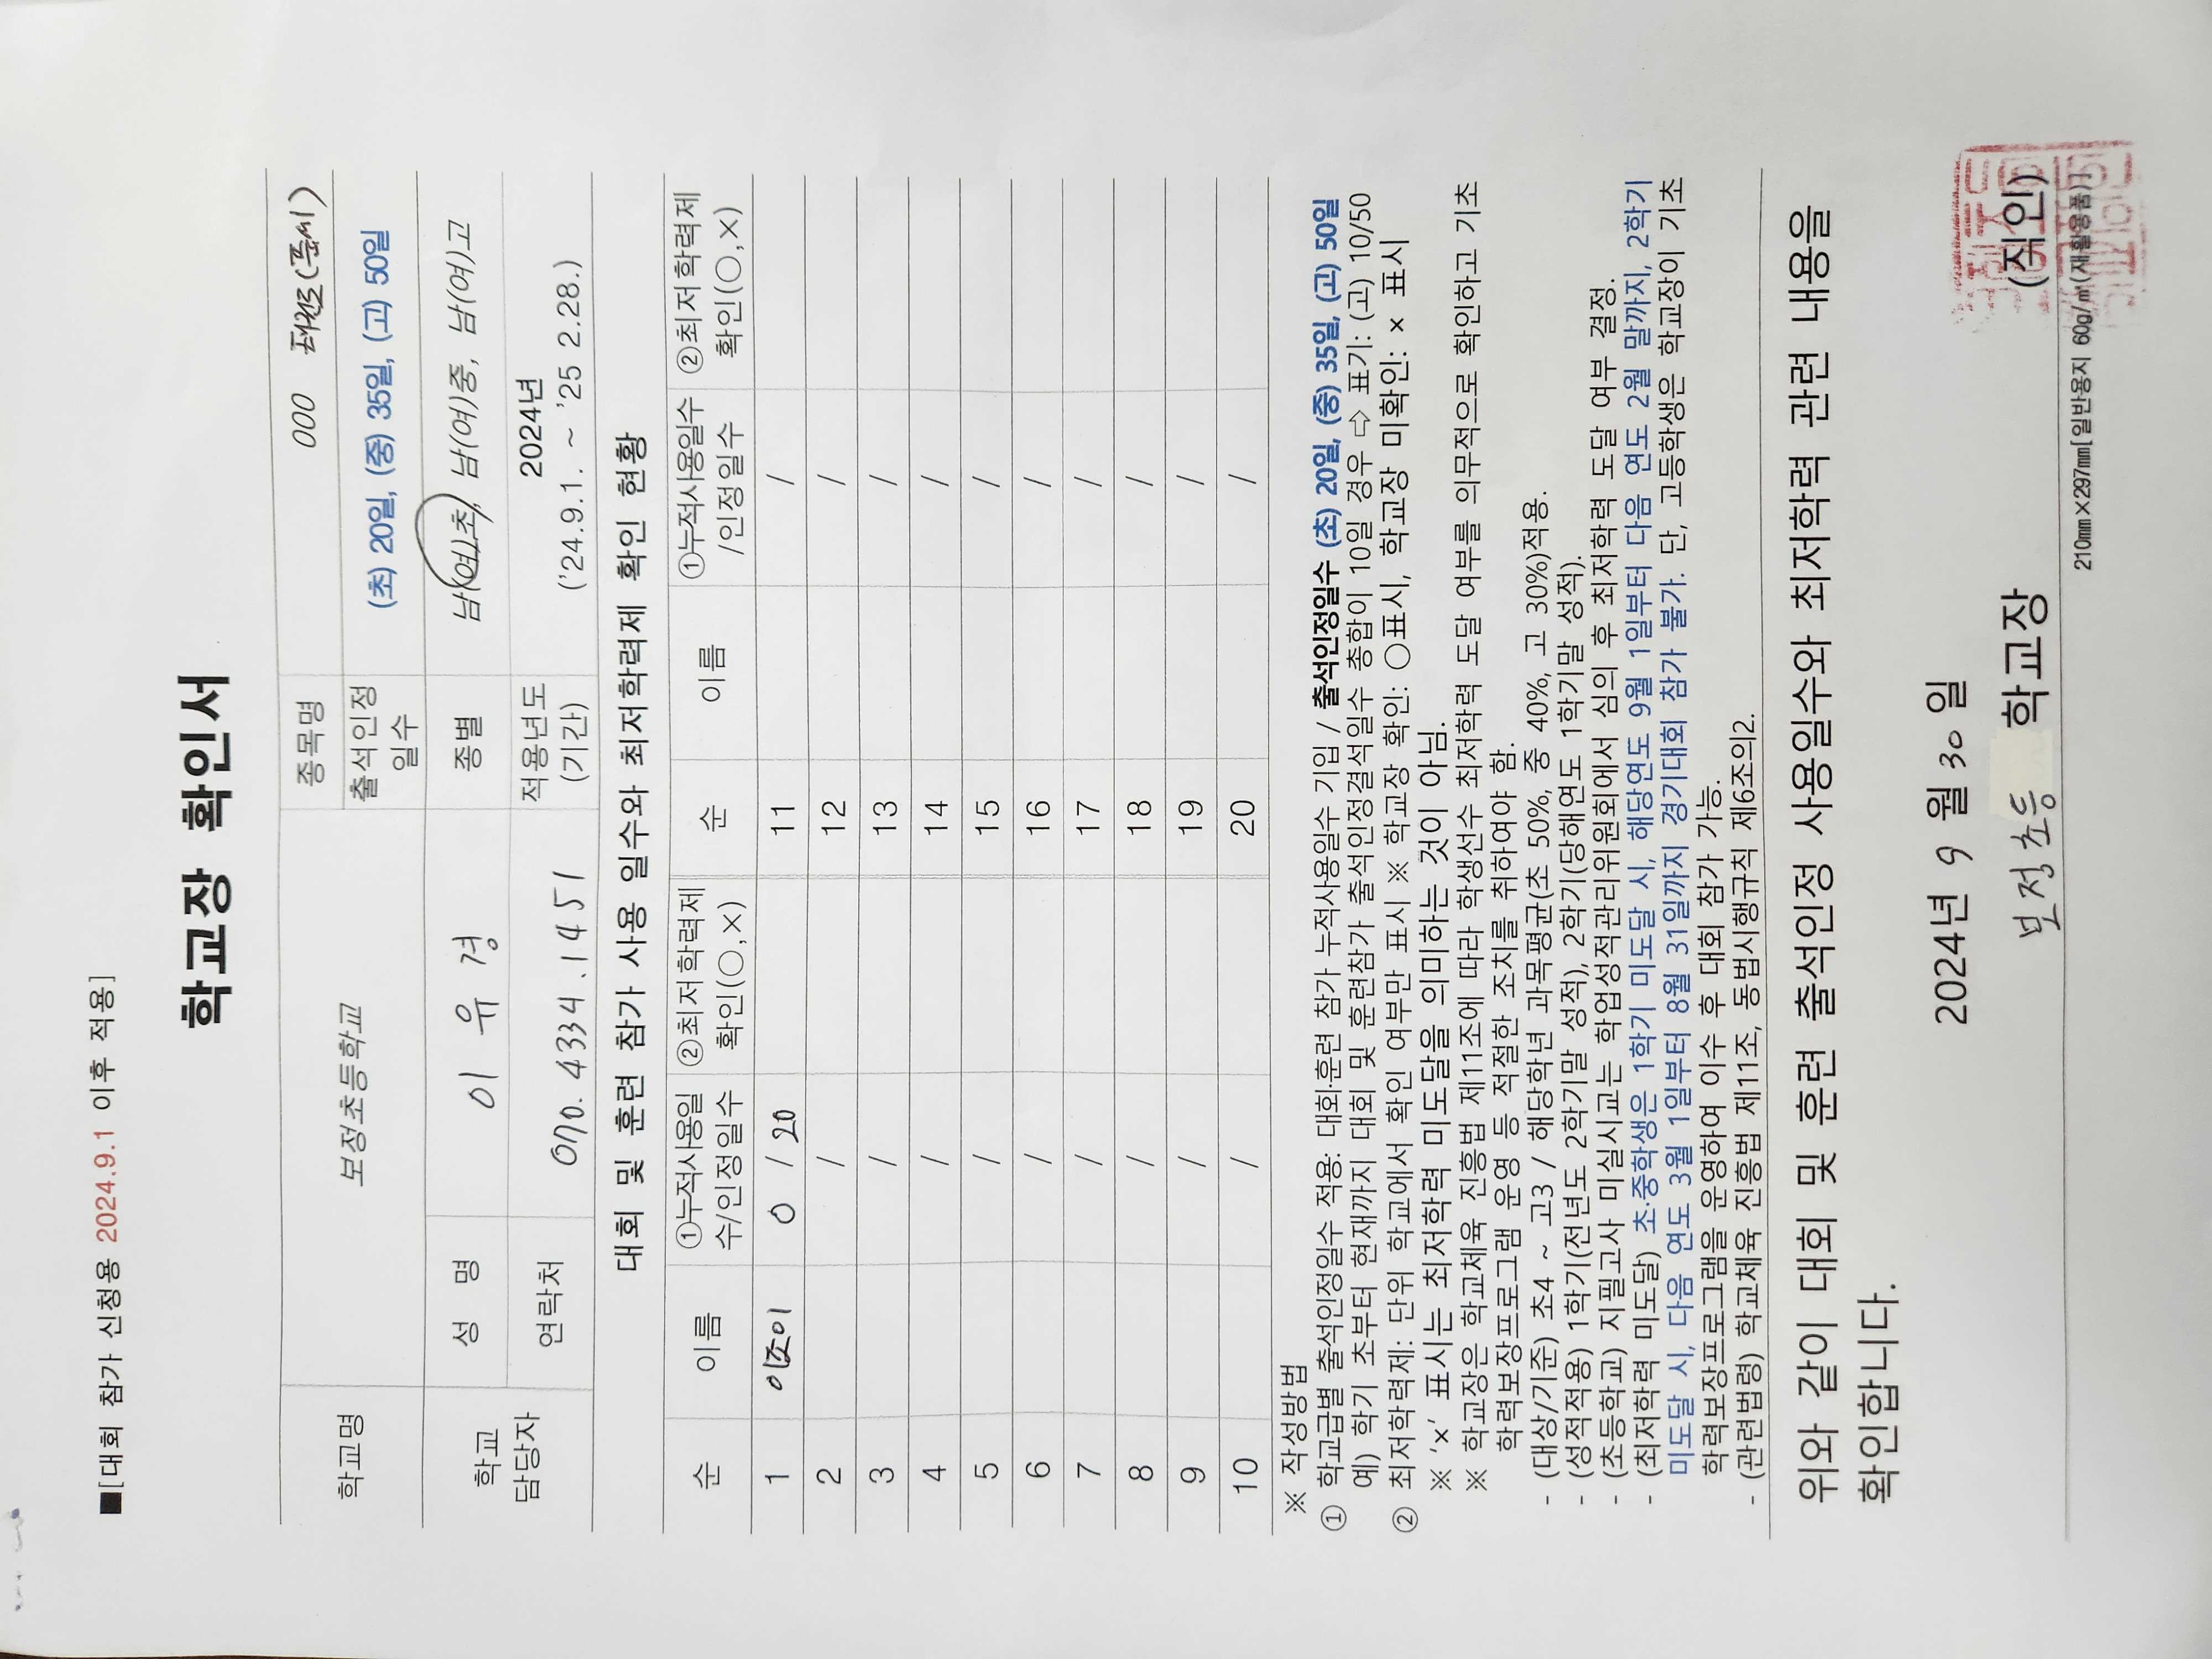 ■[대회 참가 신청용 2024.9.1 이후 적용]
학교장 확인서
학교명 보정초등학교 종목명 000 태권도(품새)
출석인정 일수 (초) 20일, (중) 35일, (고) 50일
학교 담당자 성 명 이유경 종별 남(여)초, 남(여)중, 남(여)고
연락처 010. 4334. 1451 적용년도 (기간) 2024년 ('24.9.1. ~ '25 2.28.)
대회 및 훈련 참가 사용 일수와 최저학력제 확인 현황
순 이름 ①누적사용일수/인정일수 ②최저학력제 확인(○,×) 순 이름 ①누적사용일수/인정일수 ②최저학력제 확인(○,×)
1 이조이 0 / 20 11 /
2 / 12 /
3 / 13 /
4 / 14 /
5 / 15 /
6 / 16 /
7 / 17 /
8 / 18 /
9 / 19 /
10 / 20 /
※ 작성방법
① 학교급별 출석인정일수 적용: 대회·훈련 참가 누적사용일수 기입 / 출석인정일수 (초) 20일, (중) 35일, (고) 50일
예) 학기 초부터 현재까지 대회 및 훈련참가 출석인정결석일수 총합이 10일 경우 ⇨ 표기: (고) 10/50
② 최저학력제: 단위 학교에서 확인 여부만 표시 ※ 학교장 확인: ○표시, 학교장 미확인: × 표시
※ 'x' 표시는 최저학력 미도달을 의미하는 것이 아님.
※ 학교장은 학교체육 진흥법 제11조에 따라 학생선수 최저학력 도달 여부를 의무적으로 확인하고 기초
학력보장프로그램 운영 등 적절한 조치를 취하여야 함.
- (대상/기준) 초4 ~ 고3 / 해당학년 과목평균(초 50%, 중 40%, 고 30%)적용.
- (성적적용) 1학기(전년도 2학기말 성적), 2학기(당해연도 1학기말 성적).
- (초등학교) 지필고사 미실시교는 학업성적관리위원회에서 심의 후 최저학력 도달 여부 결정.
- (최저학력 미도달) 초·중학생은 1학기 미도달 시, 해당연도 9월 1일부터 다음 연도 2월 말까지, 2학기
미도달 시, 다음 연도 3월 1일부터 8월 31일까지 경기대회 참가 불가. 단, 고등학생은 학교장이 기초
학력보장프로그램을 운영하여 이수 후 대회 참가 가능.
- (관련법령) 학교체육 진흥법 제11조, 동법시행규칙 제6조의2.
위와 같이 대회 및 훈련 출석인정 사용일수와 최저학력 관련 내용을
확인합니다.
2024년 9 월 30 일
보정초등 학교장 (직인)
210㎜×297㎜[일반용지 60g/㎡(재활용품)]